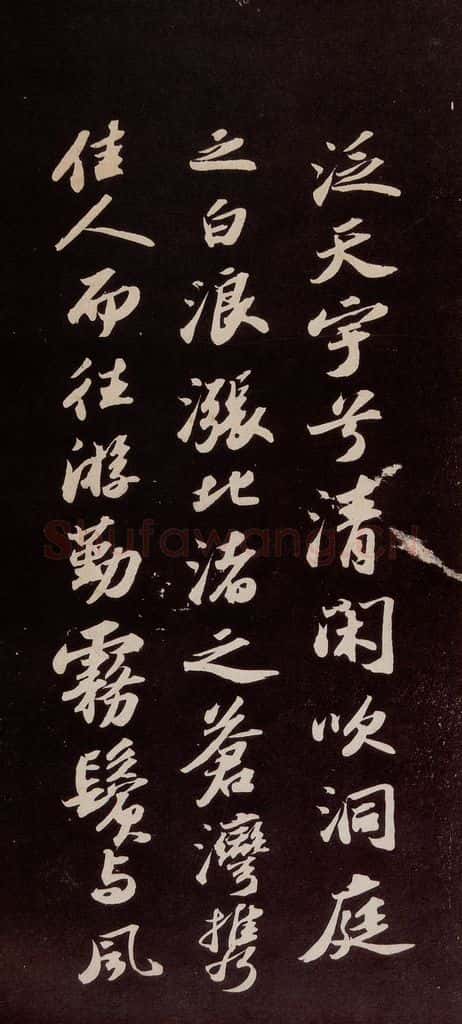 泛天宇兮清閑吹洞庭
之白浪漲北渚之蒼灣携
佳人而往游勤霧鬢与風
Shufawang.cn